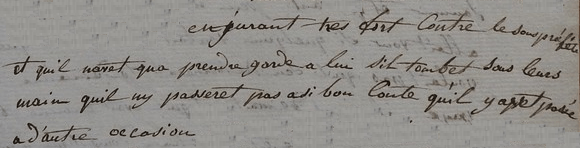 en jurant tres fort Contre le sous préfete
et quil naret qua prendre garde a lui sil tonbet sous leurs
main quil ny passeret pas a si bon Conte qu'il y apet passé
a d'autre occasion